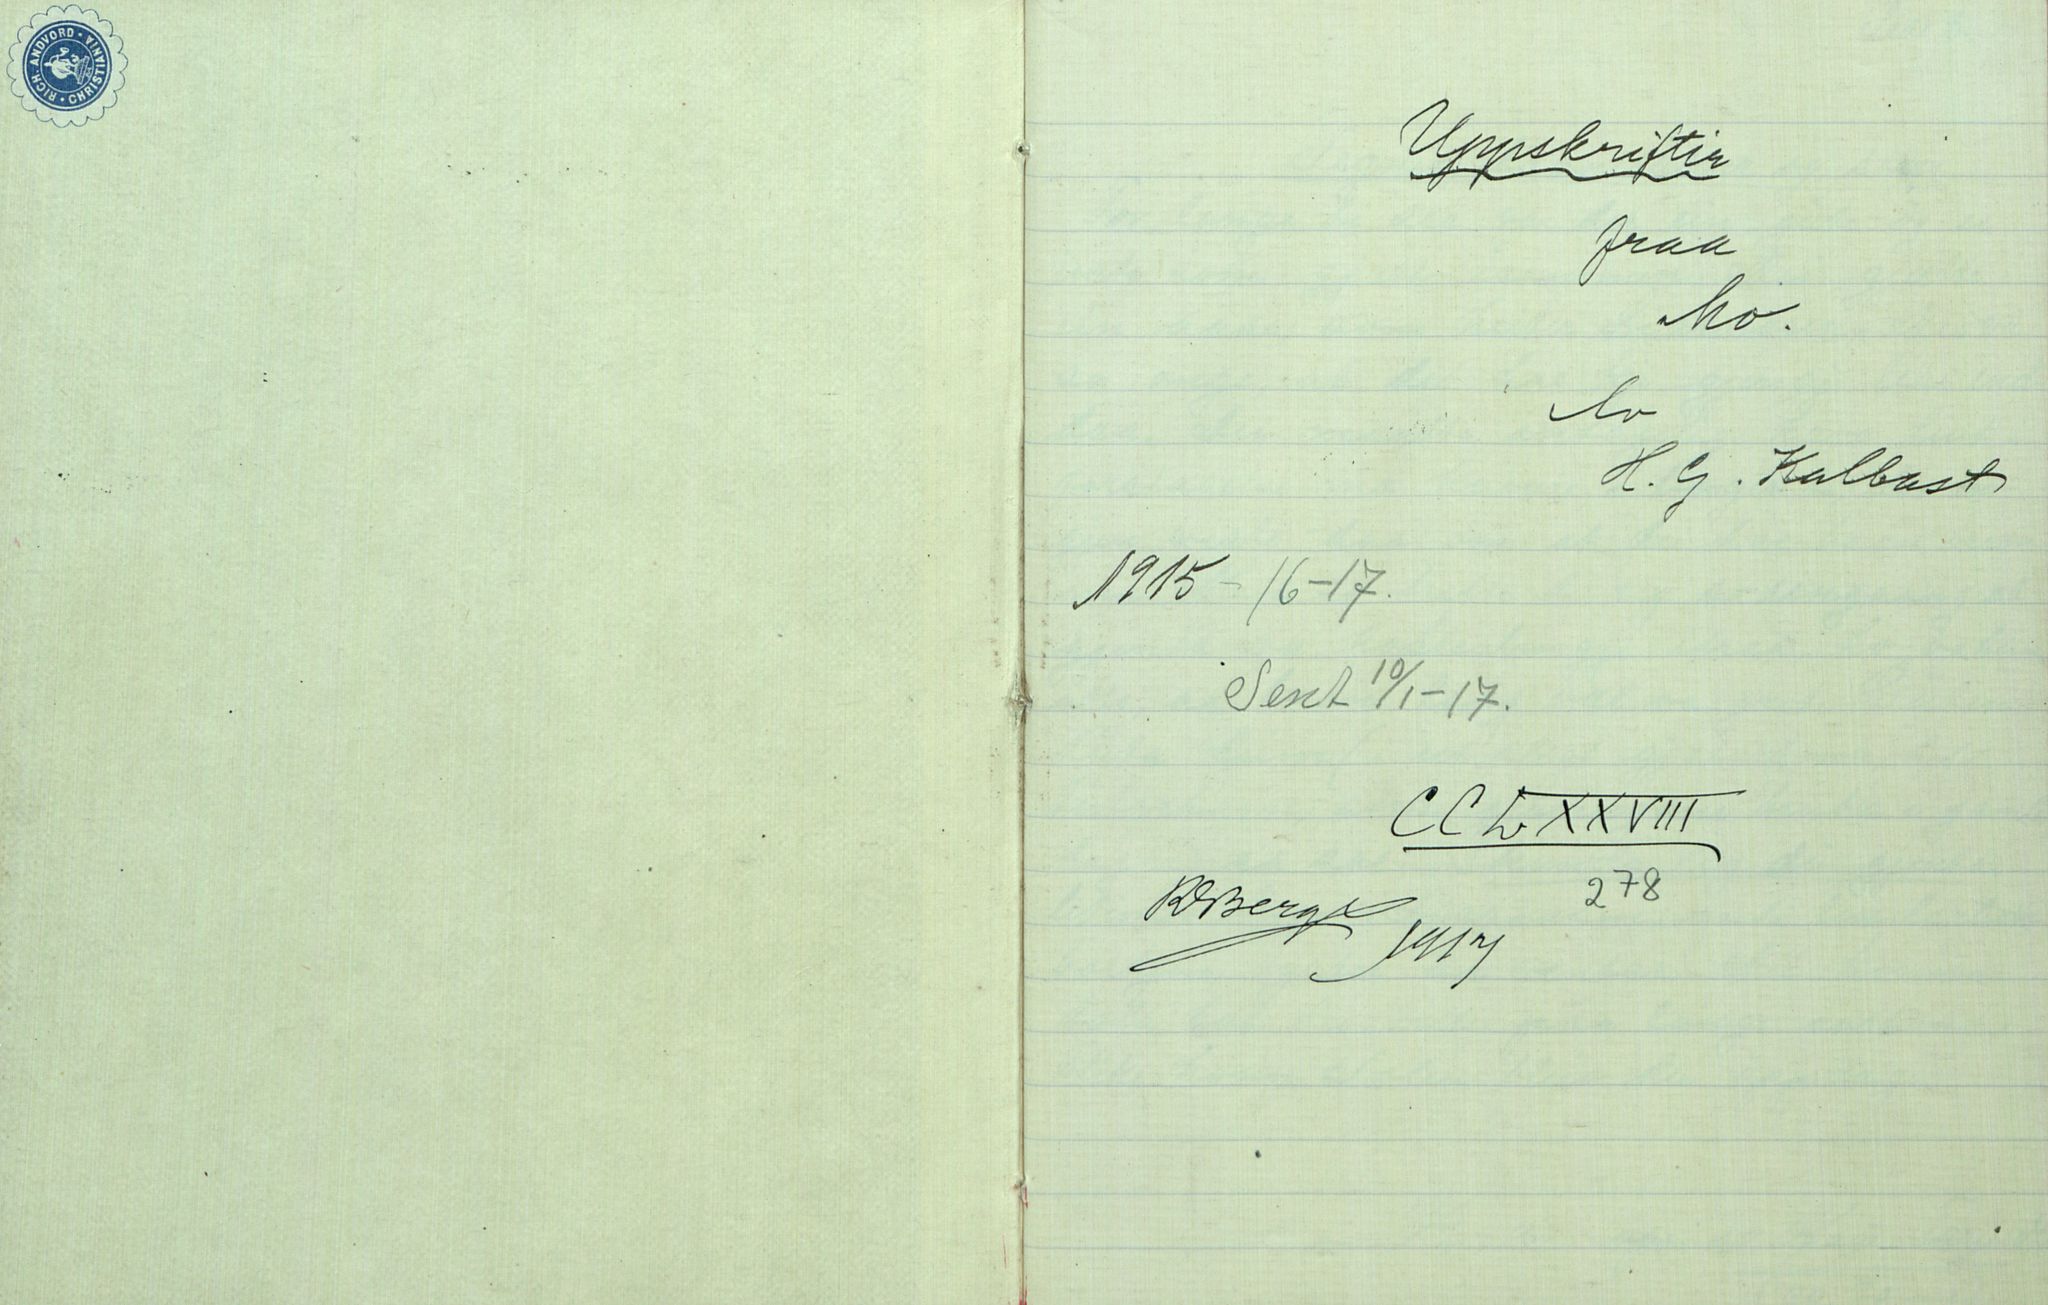 RICH. ANDVORD · CHRISTIANIA ·
Uppskriftir
fraa
Mo.
Av
H. G. Kalbast
1915 - 16-17.
Sent 10/1-17.
CCLXXVIII
278
RBerge
1917